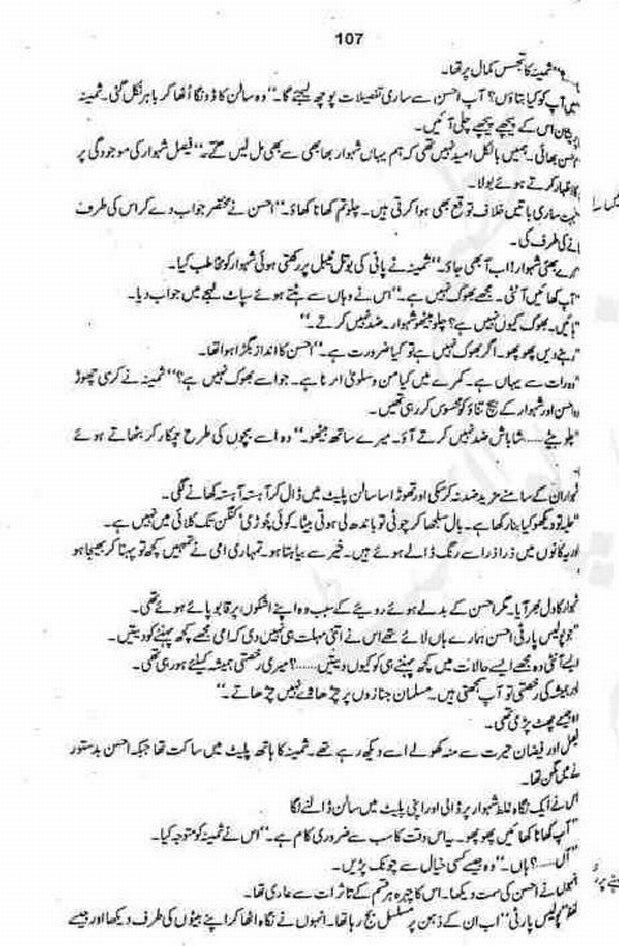 107
ہے" ثمینہ کا تجسس کمال پر تھا۔
میں آپ کو کیا بتاؤں؟ آپ احسن سے ساری تفصیلات پوچھ لیجئے گا۔" وہ سالن کا ڈونگا اٹھا کر باہر نکل گئی۔ ثمینہ
پریشان اس کے پیچھے پیچھے چلی آئیں۔
احسن بھائی۔ ہمیں بالکل امید نہیں تھی کہ ہم یہاں شہوار بھابھی سے بھی مل لیں گے۔" فیصل شہوار کی موجودگی پر
کا اظہار کرتے ہوئے بولا۔
بہت ساری باتیں خلاف توقع بھی ہوا کرتی ہیں۔ چلو تم کھانا کھاؤ۔" احسن نے مختصر جواب دے کر اس کی طرف
نے کی طرف کی۔
ارے بھئی شہوار! اب آ بھی جاؤ۔" ثمینہ نے پانی کی بوتل ٹیبل پر رکھتی ہوئی شہوار کو مخاطب کیا۔
"آپ کھائیں آنٹی۔ مجھے بھوک نہیں ہے۔" اس نے وہاں سے ہٹتے ہوئے سپاٹ لہجے میں جواب دیا۔
"ہائیں۔ بھوک کیوں نہیں ہے؟ چلو بیٹھو شہوار۔ ضد نہیں کرتے۔"
"رہنے دیں پھوپھو۔ اگر بھوک نہیں ہے تو کیا ضرورت ہے۔" احسن کا انداز بگڑا ہوا تھا۔
"وہ رات سے یہاں ہے۔ کمرے میں کیا من و سلویٰ اترنا ہے۔ جو اسے بھوک نہیں ہے؟" ثمینہ نے کرسی چھوڑ
وہ احسن اور شہوار کے بیچ تناؤ کو محسوس کر رہی تھیں۔
"چلو بیٹے.....شاباش ضد نہیں کرتے آؤ۔ میرے ساتھ بیٹھو۔" وہ اسے بچوں کی طرح چمکار کر بٹھاتے ہوئے
شہوار ان کے سامنے مزید ضد نہ کر سکی اور تھوڑا سا سالن پلیٹ میں ڈال کر آہستہ آہستہ کھانے لگی۔
"حلیہ تو دیکھو کیا بنا رکھا ہے۔ بال سلجھا کر چوٹی تو باندھ لی ہوتی بیٹا۔ کوئی چوڑی کنگن تک کلائی میں نہیں ہے۔
اور یہ کانوں میں ذرا ذرا سے رنگ ڈالے ہوئے ہیں۔ خیر سے بیاہتا ہو۔ تمہاری امی نے تمہیں کچھ تو پہنا کر بھیجا ہو
شہوار کا دل بھر آیا۔ مگر احسن کے بدلے ہوئے رویئے کے سبب وہ اپنے اشکوں پر قابو پائے ہوئے تھی۔
"جو پولیس پارٹی احسن ہمارے ہاں لائے تھے اس نے اتنی مہلت ہی نہیں دی کہ امی مجھے کچھ پہننے کو دیتیں۔
ویسے آنٹی وہ مجھے ایسے حالات میں کچھ پہننے ہی کو کیوں دیتیں......؟ میری رخصتی ہمیشہ کیلئے ہو رہی تھی۔
اور ہمیشہ کی رخصتی تو آپ سمجھتی ہیں۔ مسلمان جنازوں پر چڑھاوے نہیں چڑھاتے۔"
وہ جیسے پھٹ پڑی تھی۔
فیصل اور فیضان حیرت سے منہ کھولے اسے دیکھ رہے تھے۔ ثمینہ کا ہاتھ پلیٹ میں ساکت تھا جبکہ احسن بدستور
نے میں مگن تھا۔
اس نے ایک نگاہ غلط شہوار پر ڈالی اور اپنی پلیٹ میں سالن ڈالنے لگا
"آپ کھانا کھائیں پھوپھو۔ یہ اس وقت کا سب سے ضروری کام ہے۔" اس نے ثمینہ کو متوجہ کیا۔
"آں.....؟ ہاں۔" وہ جیسے کسی خیال سے چونک پڑیں۔
انہوں نے احسن کی سمت دیکھا۔ اس کا چہرہ ہر قسم کے تاثرات سے عاری تھا۔
لفظ "پولیس پارٹی" اب ان کے ذہن پر مسلسل بج رہا تھا۔ انہوں نے نگاہ اٹھا کر اپنے بیٹوں کی طرف دیکھا اور جیسے